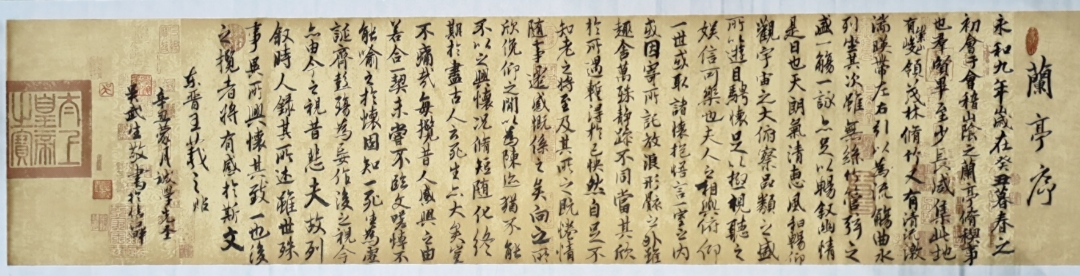 蘭亭序
永和九年歲在癸丑暮春之
初會于會稽山陰之蘭亭脩禊事
也羣賢畢至少長咸集此地
有崇領茂林脩竹又有清流激
湍暎帶左右引以為流觴曲水
列坐其次雖無絲竹管弦之
盛一觴一詠亦足以暢敘幽情
是日也天朗氣清惠風和暢仰
觀宇宙之大俯察品類之盛
所以遊目騁懷足以極視聽之
娛信可樂也夫人之相與俯仰
一世或取諸懷抱悟言一室之內
或因寄所託放浪形骸之外雖
趣舍萬殊靜躁不同當其欣
於所遇暫得於己快然自足不
知老之將至及其所之既惓情
隨事遷感慨係之矣向之所
欣俛仰之閒以為陳迹猶不能
不以之興懷況脩短隨化終
期於盡古人云死生亦大矣豈
不痛哉每攬昔人感興之由
若合一契未嘗不臨文嗟悼不
能喻之於懷固知一死生為虛
誕齊彭殤為妄作後之視今
亦由今之視昔悲夫故列
敘時人錄其所述雖世殊
事異所以興懷其致一也後
之攬者將有感於斯文
東晉王羲之帖
辛丑
武生敬書於
太上皇帝之寶